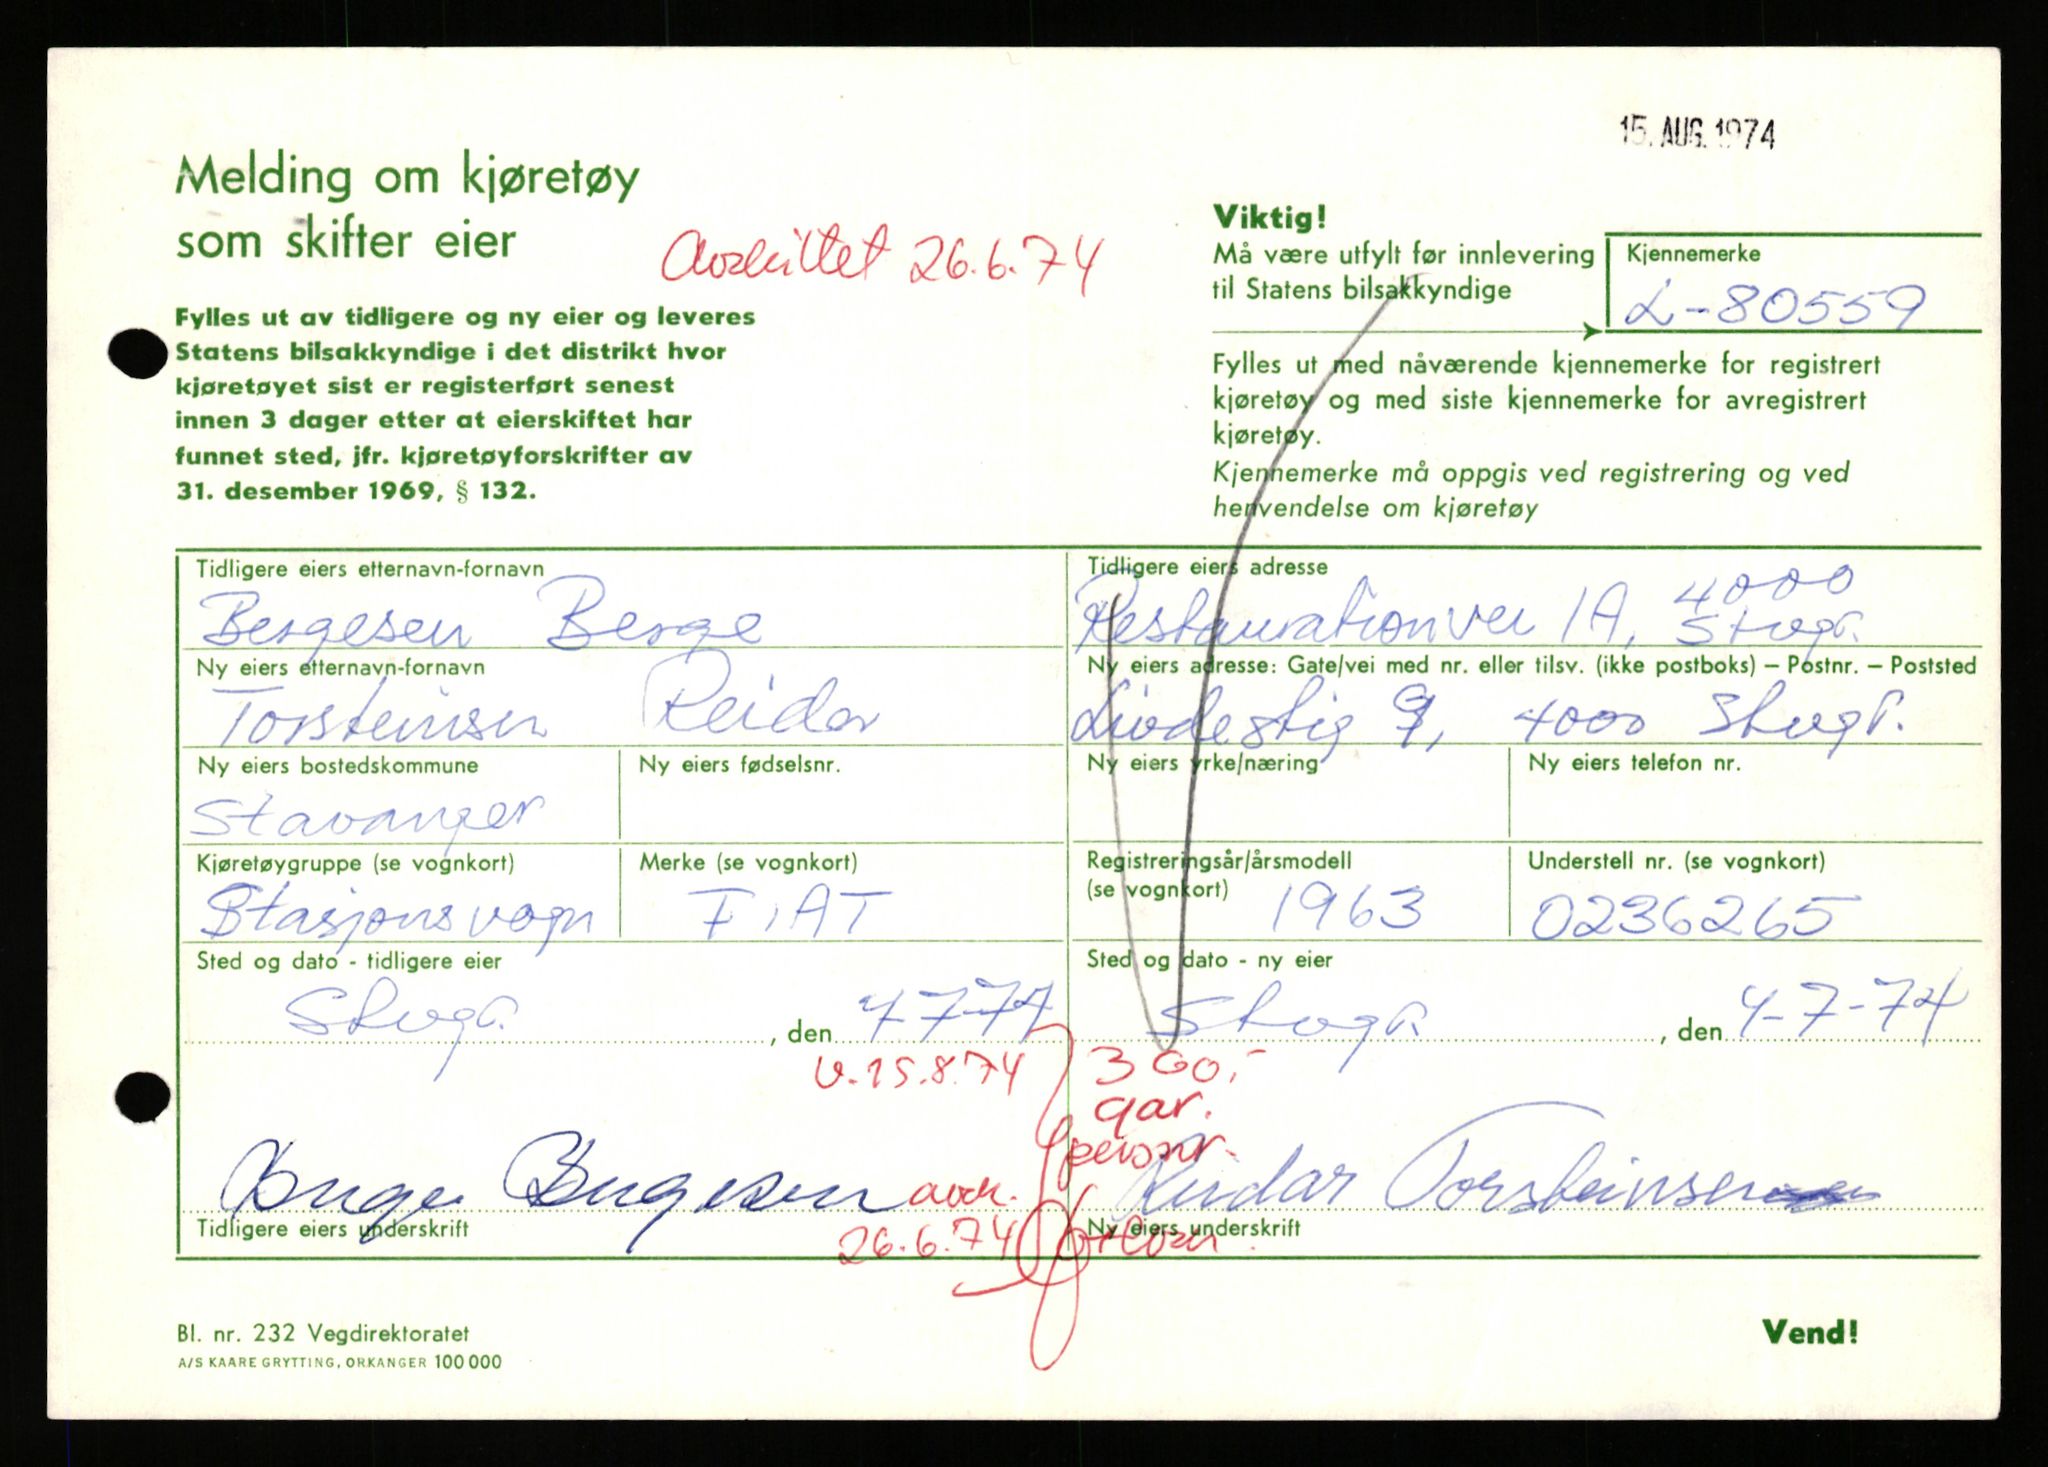 15. AUG. 1974
Melding om kjøretøy
som skifter eier
Avskiltet 26.6.74
Fylles ut av tidligere og ny eier og leveres
Statens bilsakkyndige i det distrikt hvor
kjøretøyet sist er registerført senest
innen 3 dager etter at eierskiftet har
funnet sted, jfr. kjøretøyforskrifter av
31. desember 1969, § 132.
Viktig!
Må være utfylt før innlevering
til Statens bilsakkyndige
Kjennemerke
L-80559
Fylles ut med nåværende kjennemerke for registrert
kjøretøy og med siste kjennemerke for avregistrert
kjøretøy.
Kjennemerke må oppgis ved registrering og ved
henvendelse om kjøretøy
Tidligere eiers etternavn-fornavn
Bergesen Berge
Tidligere eiers adresse
Restaurationvei 1A, 4000
Stvgr.
Ny eiers etternavn-fornavn
Torsteinsen Reidar
Ny eiers adresse: Gate/vei med nr. eller tilsv. (ikke postboks) – Postnr. – Poststed
4000 Stvgr.
Ny eiers bostedskommune
Stavanger
Ny eiers fødselsnr.
Ny eiers yrke/næring
Ny eiers telefon nr.
Kjøretøygruppe (se vognkort)
Stasjonsvogn
Merke (se vognkort)
FIAT
Registreringsår/årsmodell
(se vognkort)
1963
Understell nr. (se vognkort)
0236265
Sted og dato - tidligere eier
Stvgr. , den 4-7-74
Sted og dato - ny eier
Stvgr. , den 4-7-74
v. 15.8.74
360,-
gar.
Berge Bergesen
avsk.
26.6.74
Tidligere eiers underskrift
Reidar Torsteinsen
Ny eiers underskrift
Bl. nr. 232 Vegdirektoratet
A/S KAARE GRYTTING, ORKANGER 100 000
Vend!